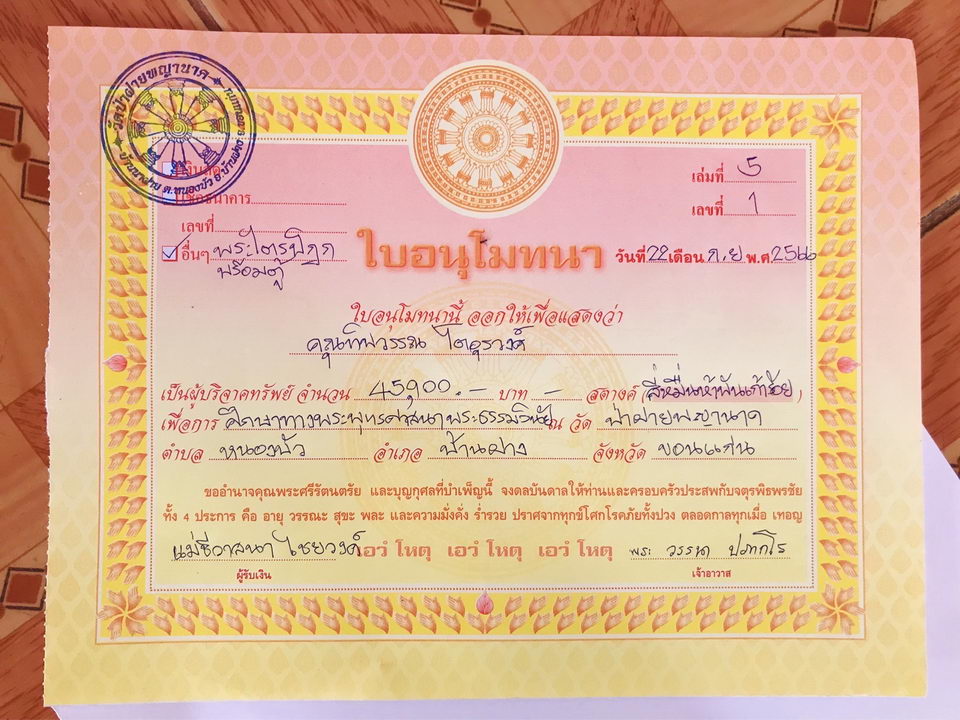 วัดป่าฝ่ายพญานาค
บ้านนาฝาย ต.หนองบัว อ.บ้านฝาง จ.ขอนแก่น
เงินสด
ธนาคาร
เลขที่
อื่นๆ พระไตรปิฎก
พร้อมตู้
เล่มที่ 5
เลขที่ 1
ใบอนุโมทนา
วันที่ 22 เดือน ก.ย พ.ศ. 2566
ใบอนุโมทนานี้ ออกให้เพื่อแสดงว่า
คุณทิพวรรณ ไตอุรวงศ์
เป็นผู้บริจาคทรัพย์ จำนวน 45,900.- บาท - สตางค์ (สี่หมื่นห้าพันเก้าร้อย)
เพื่อการ ศึกษาทางพระพุทธศาสนาพระธรรมวินัย ณ วัด ป่าฝายพญานาค
ตำบล หนองบัว อำเภอ บ้านฝาง จังหวัด ขอนแก่น
ขออำนาจคุณพระศรีรัตนตรัย และบุญกุศลที่บำเพ็ญนี้ จงดลบันดาลให้ท่านและครอบครัวประสพกับจตุรพิธพรชัย
ทั้ง 4 ประการ คือ อายุ วรรณะ สุขะ พละ และความมั่งคั่ง ร่ำรวย ปราศจากทุกข์โศกโรคภัยทั้งปวง ตลอดกาลทุกเมื่อ เทอญ
แม่ชีวาสนา ไชยวงค์ เอวํ โหตุ เอวํ โหตุ เอวํ โหตุ พระ วรรณา ปภากโร
ผู้รับเงิน
เจ้าอาวาส